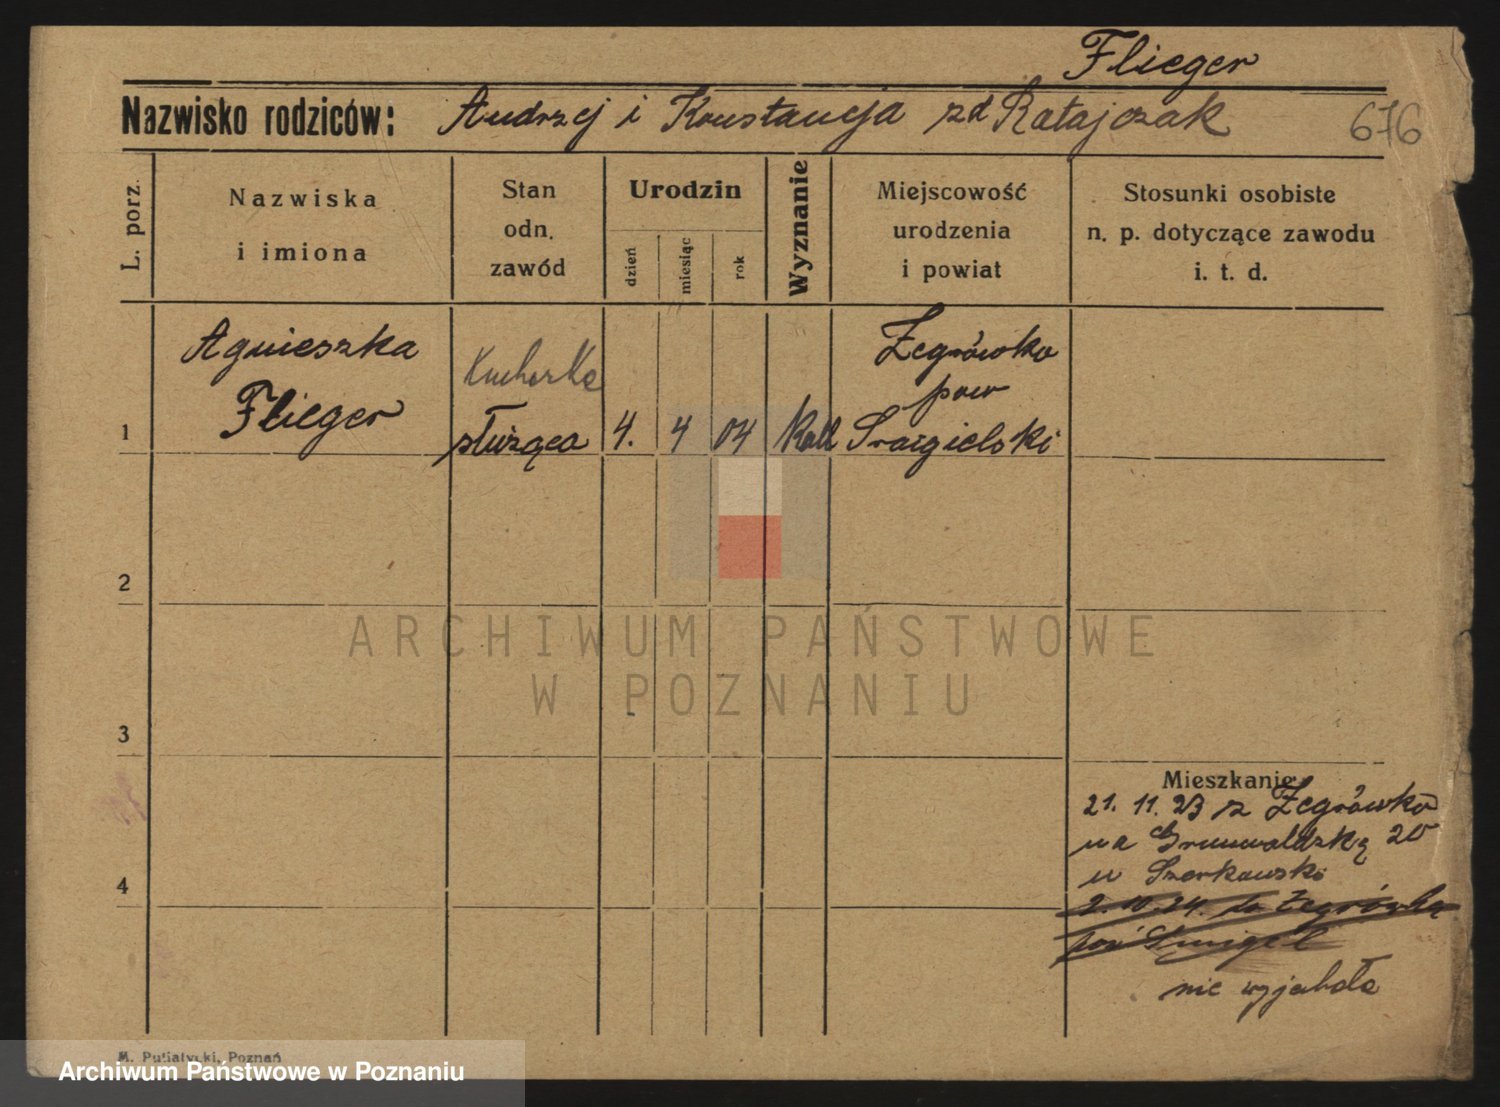 Flieger
Nazwisko rodziców: Andrzej i Konstancja zd Ratajczak 676
L. porz.
Nazwiska
i imiona
Stan
odn.
zawód
Urodzin
dzień
miesiąc
rok
Wyznanie
Miejscowość
urodzenia
i powiat
Stosunki osobiste
n. p. dotyczące zawodu
i. t. d.
1
Agnieszka
Flieger
Kucharka
służąca
4. 4 04
Żegrówko
pow
Śmigielski
2
3
4
Mieszkanie
21. 11. 23 z Żegrówko
na Grunwaldzką 20
u Szerkowski
2. 10. 24. do Żegrówka
pow Śmigel
nie wyjechała
M. Putiatycki, Poznań
ARCHIWUM PAŃSTWOWE
W POZNANIU
Archiwum Państwowe w Poznaniu